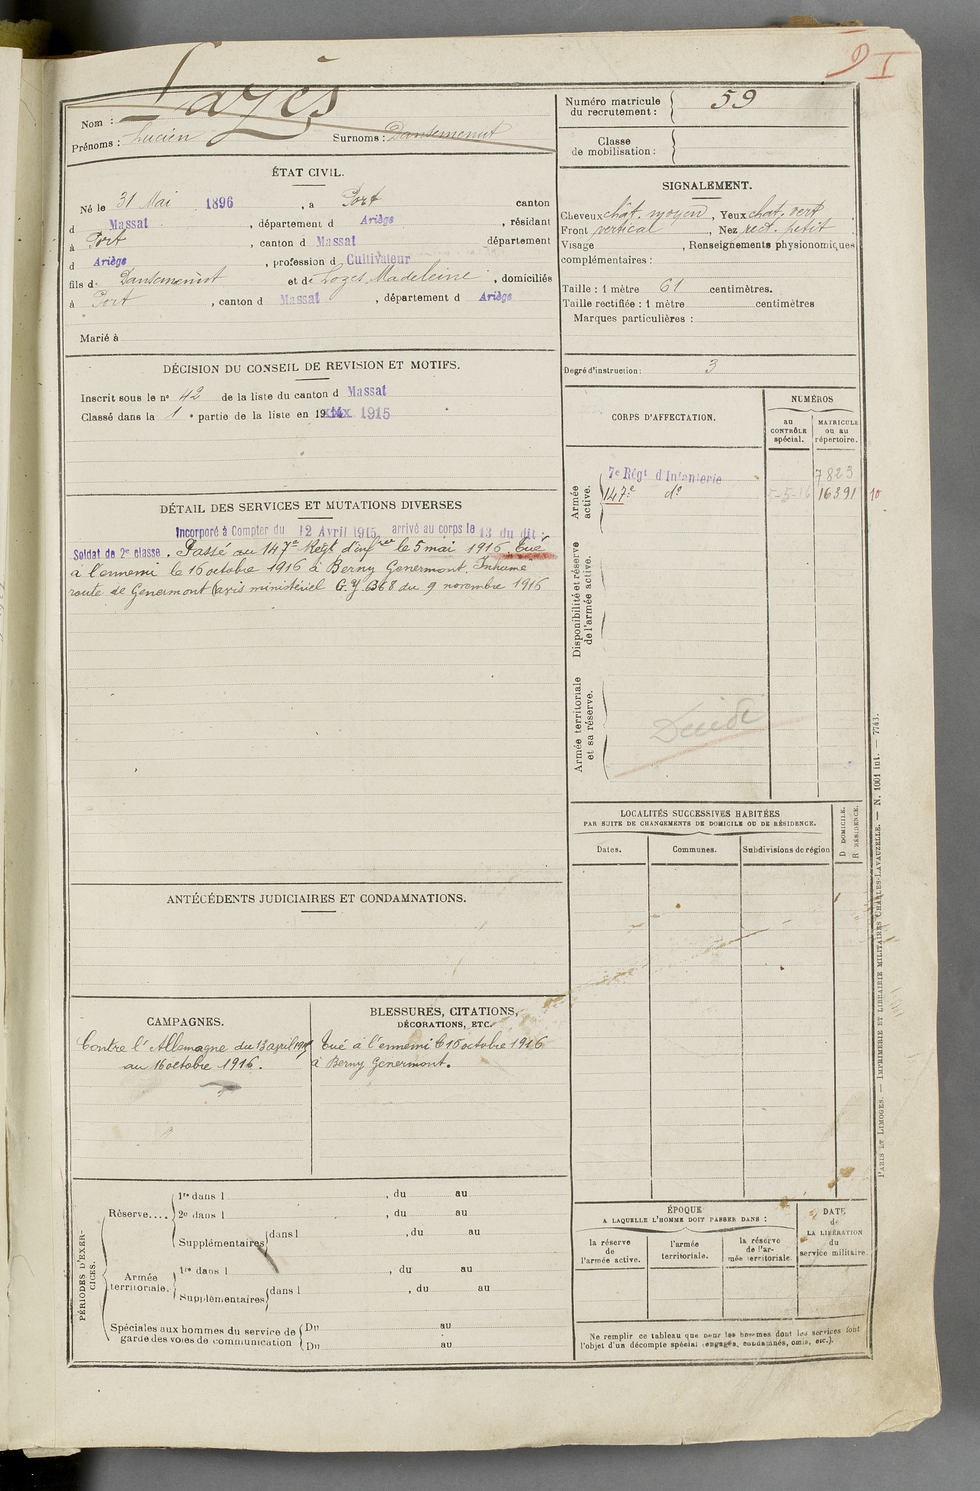 9 I
Nom :
Prénoms : Lucien Surnoms : Dansemenut
Numéro matricule du recrutement : 59
Classe de mobilisation :
ÉTAT CIVIL.
Né le 31 Mai 1896, à Port canton
d Massat, département d Ariège, résidant
à Port, canton d Massat département
d Ariège, profession d Cultivateur
fils de Dansemenut et de Madeleine, domiciliés
à Port, canton d Massat, département d Ariège
Marié à
SIGNALEMENT.
Cheveux chât. moyen, Yeux chat. vert.
Front vertical, Nez rect. petit.
Visage , Renseignements physionomiques
complémentaires :
Taille : 1 mètre 61 centimètres.
Taille rectifiée : 1 mètre centimètres
Marques particulières :
Degré d'instruction : 3
DÉCISION DU CONSEIL DE REVISION ET MOTIFS.
Inscrit sous le nº 42 de la liste du canton d Massat
Classé dans la 1e partie de la liste en 19 1915
DÉTAIL DES SERVICES ET MUTATIONS DIVERSES
Incorporé à Compter du 12 Avril 1915, arrivé au corps le 13 du dit ;
Soldat de 2e classe. Passé au 147e Régt d'inf rie le 5 mai 1916. Tué
à l'ennemi le 16 octobre 1916 à Berny Genermont. Inhumé
route de Genermont (avis ministériel G.Y. 368 du 9 novembre 1916
CORPS D'AFFECTATION.
NUMÉROS
au CONTRÔLE spécial.
MATRICULE ou au répertoire.
Armée active.
7e Régt d'Infanterie 7823
147e dº 5-5-16 16391 10
Disponibilité et réserve de l'armée active.
Armée territoriale et sa réserve.
LOCALITÉS SUCCESSIVES HABITÉES
PAR SUITE DE CHANGEMENTS DE DOMICILE OU DE RÉSIDENCE.
Dates. Communes. Subdivisions de région
D DOMICILE. R RÉSIDENCE.
ANTÉCÉDENTS JUDICIAIRES ET CONDAMNATIONS.
CAMPAGNES.
Contre l'Allemagne du 13 april 1915
au 16 octobre 1916.
BLESSURES, CITATIONS,
DÉCORATIONS, ETC.
Tué à l'ennemi le 16 octobre 1916
à Berny Genermont.
PÉRIODES D'EXERCICES.
Réserve.... 1re dans l , du au
2e dans l , du au
Supplémentaires dans l , du au
Armée territoriale. 1re dans l , du au
Supplémentaires dans l , du au
Spéciales aux hommes du service de garde des voies de communication Du au
Du au
ÉPOQUE
A LAQUELLE L'HOMME DOIT PASSER DANS :
la réserve de l'armée active.
l'armée territoriale.
la réserve de l'armée territoriale.
DATE de LA LIBÉRATION du service militaire.
Ne remplir ce tableau que pour les hommes dont les services font
l'objet d'un décompte spécial (engagés, condamnés, omis, etc.).
PARIS ET LIMOGES. — IMPRIMERIE ET LIBRAIRIE MILITAIRES CHARLES-LAVAUZELLE. — N. 1001 int. — 7743.